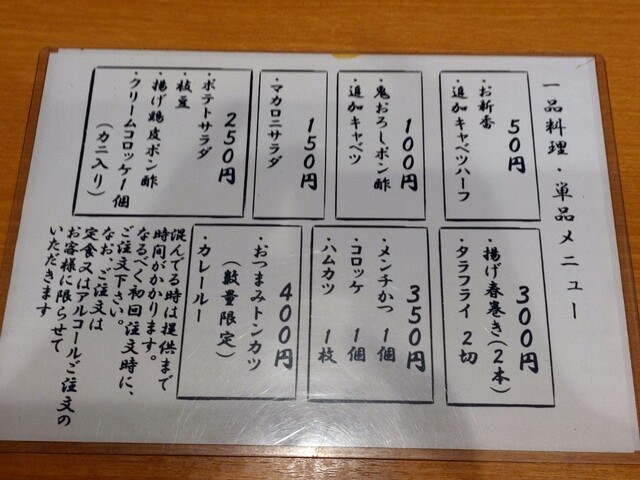 一品料理・単品メニュー
50円
・お新香
・追加キャベツハーフ
100円
・鬼おろしポン酢
・追加キャベツ
150円
・マカロニサラダ
250円
・ポテトサラダ
・枝豆
・揚げ鶏皮ポン酢
・クリームコロッケ1個
(カニ入り)
300円
・揚げ春巻き(2本)
・タラフライ 2切
350円
・メンチかつ 1個
・コロッケ 1個
・ハムカツ 1枚
400円
・おつまみトンカツ
(数量限定)
・カレールー
混んでる時は提供まで
時間がかかります。
なるべく初回注文時に、
ご注文下さい。
なお、ご注文は
定食又はアルコールご注文の
お客様に限らせて
いただきます